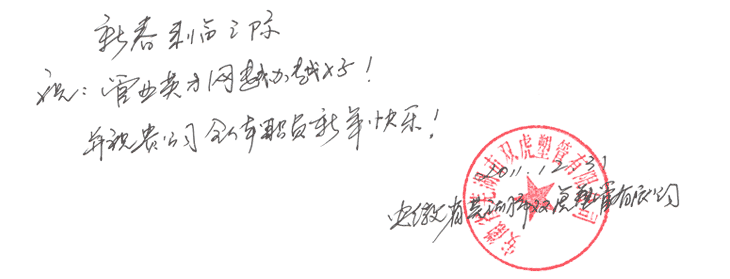 新春来临之际
祝：管业英才网越办越好！
并祝贵公司全体职员新年快乐！
2011.12.31
安徽省芜湖市双虎塑管有限公司
安徽省芜湖市双虎塑管有限公司